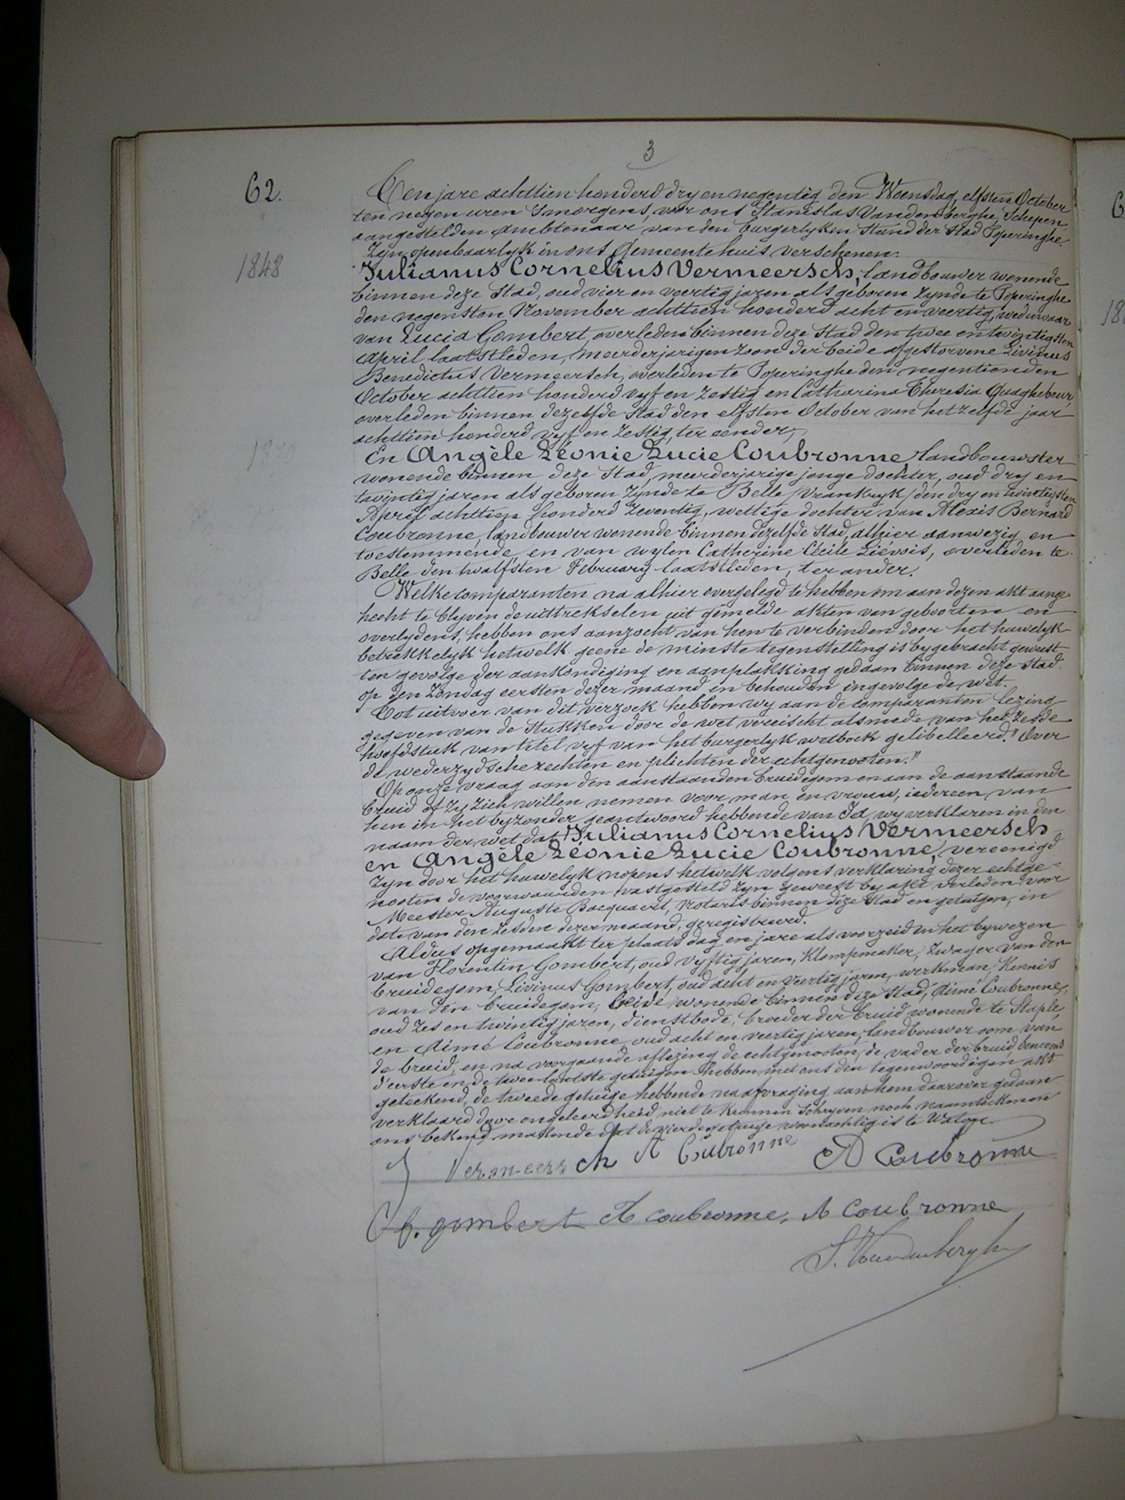 3
62.
Ten jare achttien honderd dry en negentig den Woensdag elfsten October
ten negen uren 's morgens, voor ons Stanislas Vandenberghe, Schepen
aangestelden Ambtenaar van den burgerlyken Stand der Stad Poperinghe
Zyn openbaarlyk in ons Gemeentehuis verschenen:
1848
Julianus Cornelius Vermeersch, landbouwer wonende
binnen deze Stad, oud vier en veertig jaren als geboren zynde te Poperinghe
den negensten November achttien honderd acht en veertig, weduwaar
van Lucia Gombert, overleden binnen deze Stad den twee en twintigsten
April laatstleden, meerderjarigen zoon der beide afgestorvene Livinus
Benedictus Vermeersch, overleden te Poperinghe den negentienden
October achttien honderd vyf en zestig en Catharina Theresia Quaghebeur
overleden binnen dezelfde Stad den elfsten October van hetzelfde jaar
achttien honderd vyf en zestig, ter eender;
En Angèle Léonie Lucie Coubronne, landbouwster
wonende binnen deze Stad, meerderjarige jonge dochter, oud dry en
twintig jaren als geboren zynde te Belle (Vrankryk) den dry en twintigsten
April achttien honderd zeventig, wettige dochter van Alexis Bernard
Coubronne, landbouwer wonende binnen dezelfde Stad, alhier aanwezig en
toestemmende en van wylen Catherine Cécile Liévois, overleden te
Belle den twalfsten February laatstleden, ter ander.
Welke comparanten na alhier overgelegd te hebben om aan dezen akt aange-
hecht te blyven de uittrekselen uit gemelde akten van geboorten en
overlydens, hebben ons aanzocht van hen te verbinden door het huwelyk
betrekkelyk hetwelk geene de minste tegenstelling is bygebracht geweest
ten gevolge der aankondiging en aanplakking gedaan binnen deze Stad
op den Zondag eersten dezer maand en behouden ingevolge de wet.
Tot uitvoer van dit verzoek hebben wy aan de comparanten lezing
gegeven van de stukken door de wet vereischt alsmede van het zesde
hoofdstuk van titel vyf van het burgerlyk wetboek gelibelleerd: "Over
de wederzydsche rechten en plichten der echtgenooten."
Op onze vraag aan den aanstaanden bruidegom en aan de aanstaande
bruid of zy zich willen nemen voor man en vrouw, iedereen van
hen in het byzonder geantwoord hebbende van Ja, wy verklaren in den
naam der wet dat Julianus Cornelius Vermeersch
en Angèle Léonie Lucie Coubronne, vereenigd
zyn door het huwelyk nopens hetwelk volgens verklaring dezer echtge-
nooten de voorwaarden vastgesteld zyn geweest by akt verleden voor
Meester Auguste Bacquaert, Notaris binnen deze Stad en getuigen, in
date van den zesden dezer maand, geregistreerd.
Aldus opgemaakt ter plaats dag en jare als voorzeid in het bywezen
van Florentin Gombert, oud vyftig jaren, klompmaker, zwager van den
bruidegom, Livinus Gombert, oud acht en veertig jaren, werkman, kennis
van den bruidegom, beide wonende binnen deze Stad, Aimé Coubronne,
oud zes en twintig jaren, dienstbode, broeder der bruid wonende te Staple
en Aimé Coubronne oud acht en veertig jaren, landbouwer oom van
de bruid, en na voorgaande aflezing de echtgenooten, de vader der bruid benevens
d'eerste en de twee laatste getuigen hebben met ons den tegenwoordigen akt
geteekend, de tweede getuige hebbende na afvraging aan hem daarover gedaan
verklaard door ongeleerdheid niet te kunnen schryven noch naamteekenen
ons bekend makende dat de vierde getuige woonachtig is te Watou.
J Vermeersch A Coubronne A Coubronne
f. gombert A coubronne, A Coubronne
S. Vandenberghe